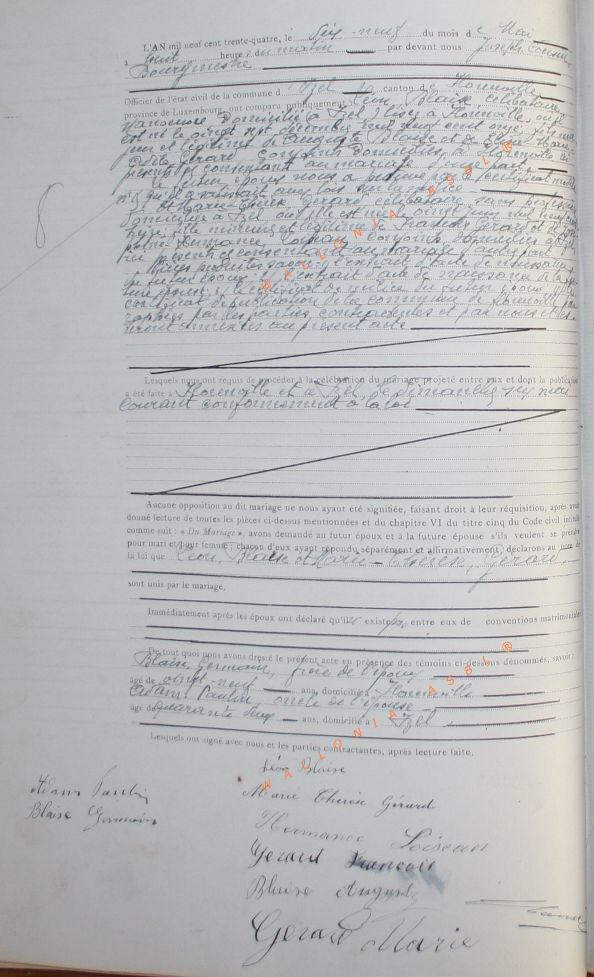 L'AN mil neuf cent trente-quatre, le dix-neuf du mois de Mai
à huit heures du matin par devant nous Joseph
Bourgmestre
Officier de l'état civil de la commune d'Izel canton de Florenville
province de Luxembourg, ont comparu publiquement Léon, Blaise, célibataire,
domicilié à Izel à Florenville, où il
est né le vingt sept décembre mil neuf cent onze, fils
et légitime de Auguste Blaise et de
Gérard conjoints domiciliés à Florenville ici
présents et consentant au mariage d'une part
le futur époux nous a certificat
qu'il a satisfait aux lois sur la milice
Et Marie Thérèse Gérard célibataire sans profession
domiciliée à Izel où elle est née le vingt juin mil neuf cent
fille mineure et légitime de François Gérard et de
Hermance Loiseau conjoints domiciliés à Izel
ici présents et consentant au mariage d'autre part
l'extrait d'acte de naissance
du futur époux l'extrait d'acte de naissance de la
future épouse le certificat de milice du futur époux le
certificat de publication de la commune de Florenville
par les parties contractantes et par nous et
annexés au présent acte
Lesquels nous ont requis de procéder à la célébration du mariage projeté entre eux et dont la publication
a été faite à Florenville et à Izel, le dimanche six mai
courant conformément à la loi
Aucune opposition au dit mariage ne nous ayant été signifiée, faisant droit à leur réquisition, après avoir
donné lecture de toutes les pièces ci-dessus mentionnées et du chapitre VI du titre cinq du Code civil intitulé
comme suit : « Du Mariage », avons demandé au futur époux et à la future épouse s'ils veulent se prendre
pour mari et pour femme : chacun d'eux ayant répondu séparément et affirmativement, déclarons au nom de
la loi que Léon, Blaise et Marie-Thérèse, Gérard,
sont unis par le mariage.
Immédiatement après les époux ont déclaré qu'il existe pas entre eux de conventions matrimoniales
De tout quoi nous avons dressé le présent acte en présence des témoins ci-dessus dénommés, savoir :
Blaise Germain, frère de l'époux
âgé de vingt-neuf ans, domicilié à Florenville
Adam Paulin oncle de l'épouse
âgé de quarante ans, domicilié à Izel
Lesquels ont signé avec nous et les parties contractantes, après lecture faite.
Léon Blaise
Adam Paulin
Marie Thérèse Gérard
Blaise Germain
Hermance Loiseau
Gerard François
Blaise August
Gerard Marie
WALLONIA ASBL®
WALLONIA ASBL®